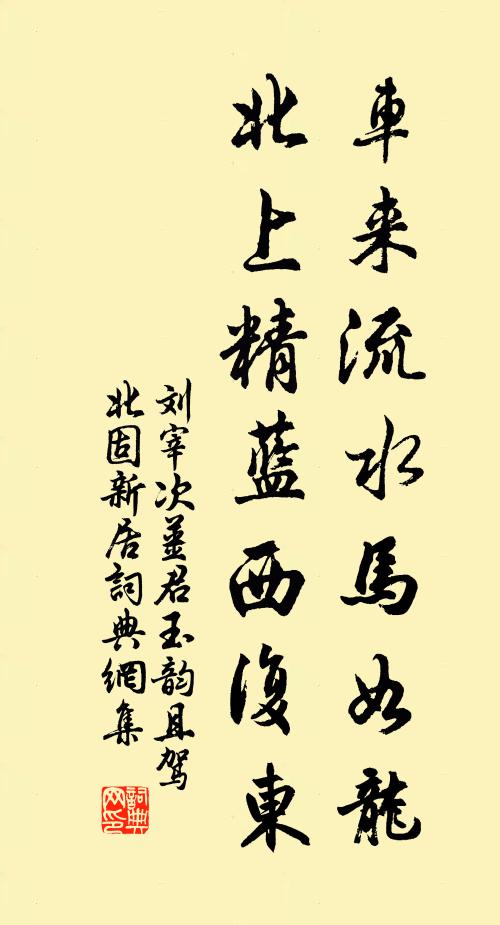 車来流水馬如龍
北上精藍西復東
刘宰次姜君玉韵且駕
北固新居詞典網集
詞典
网印